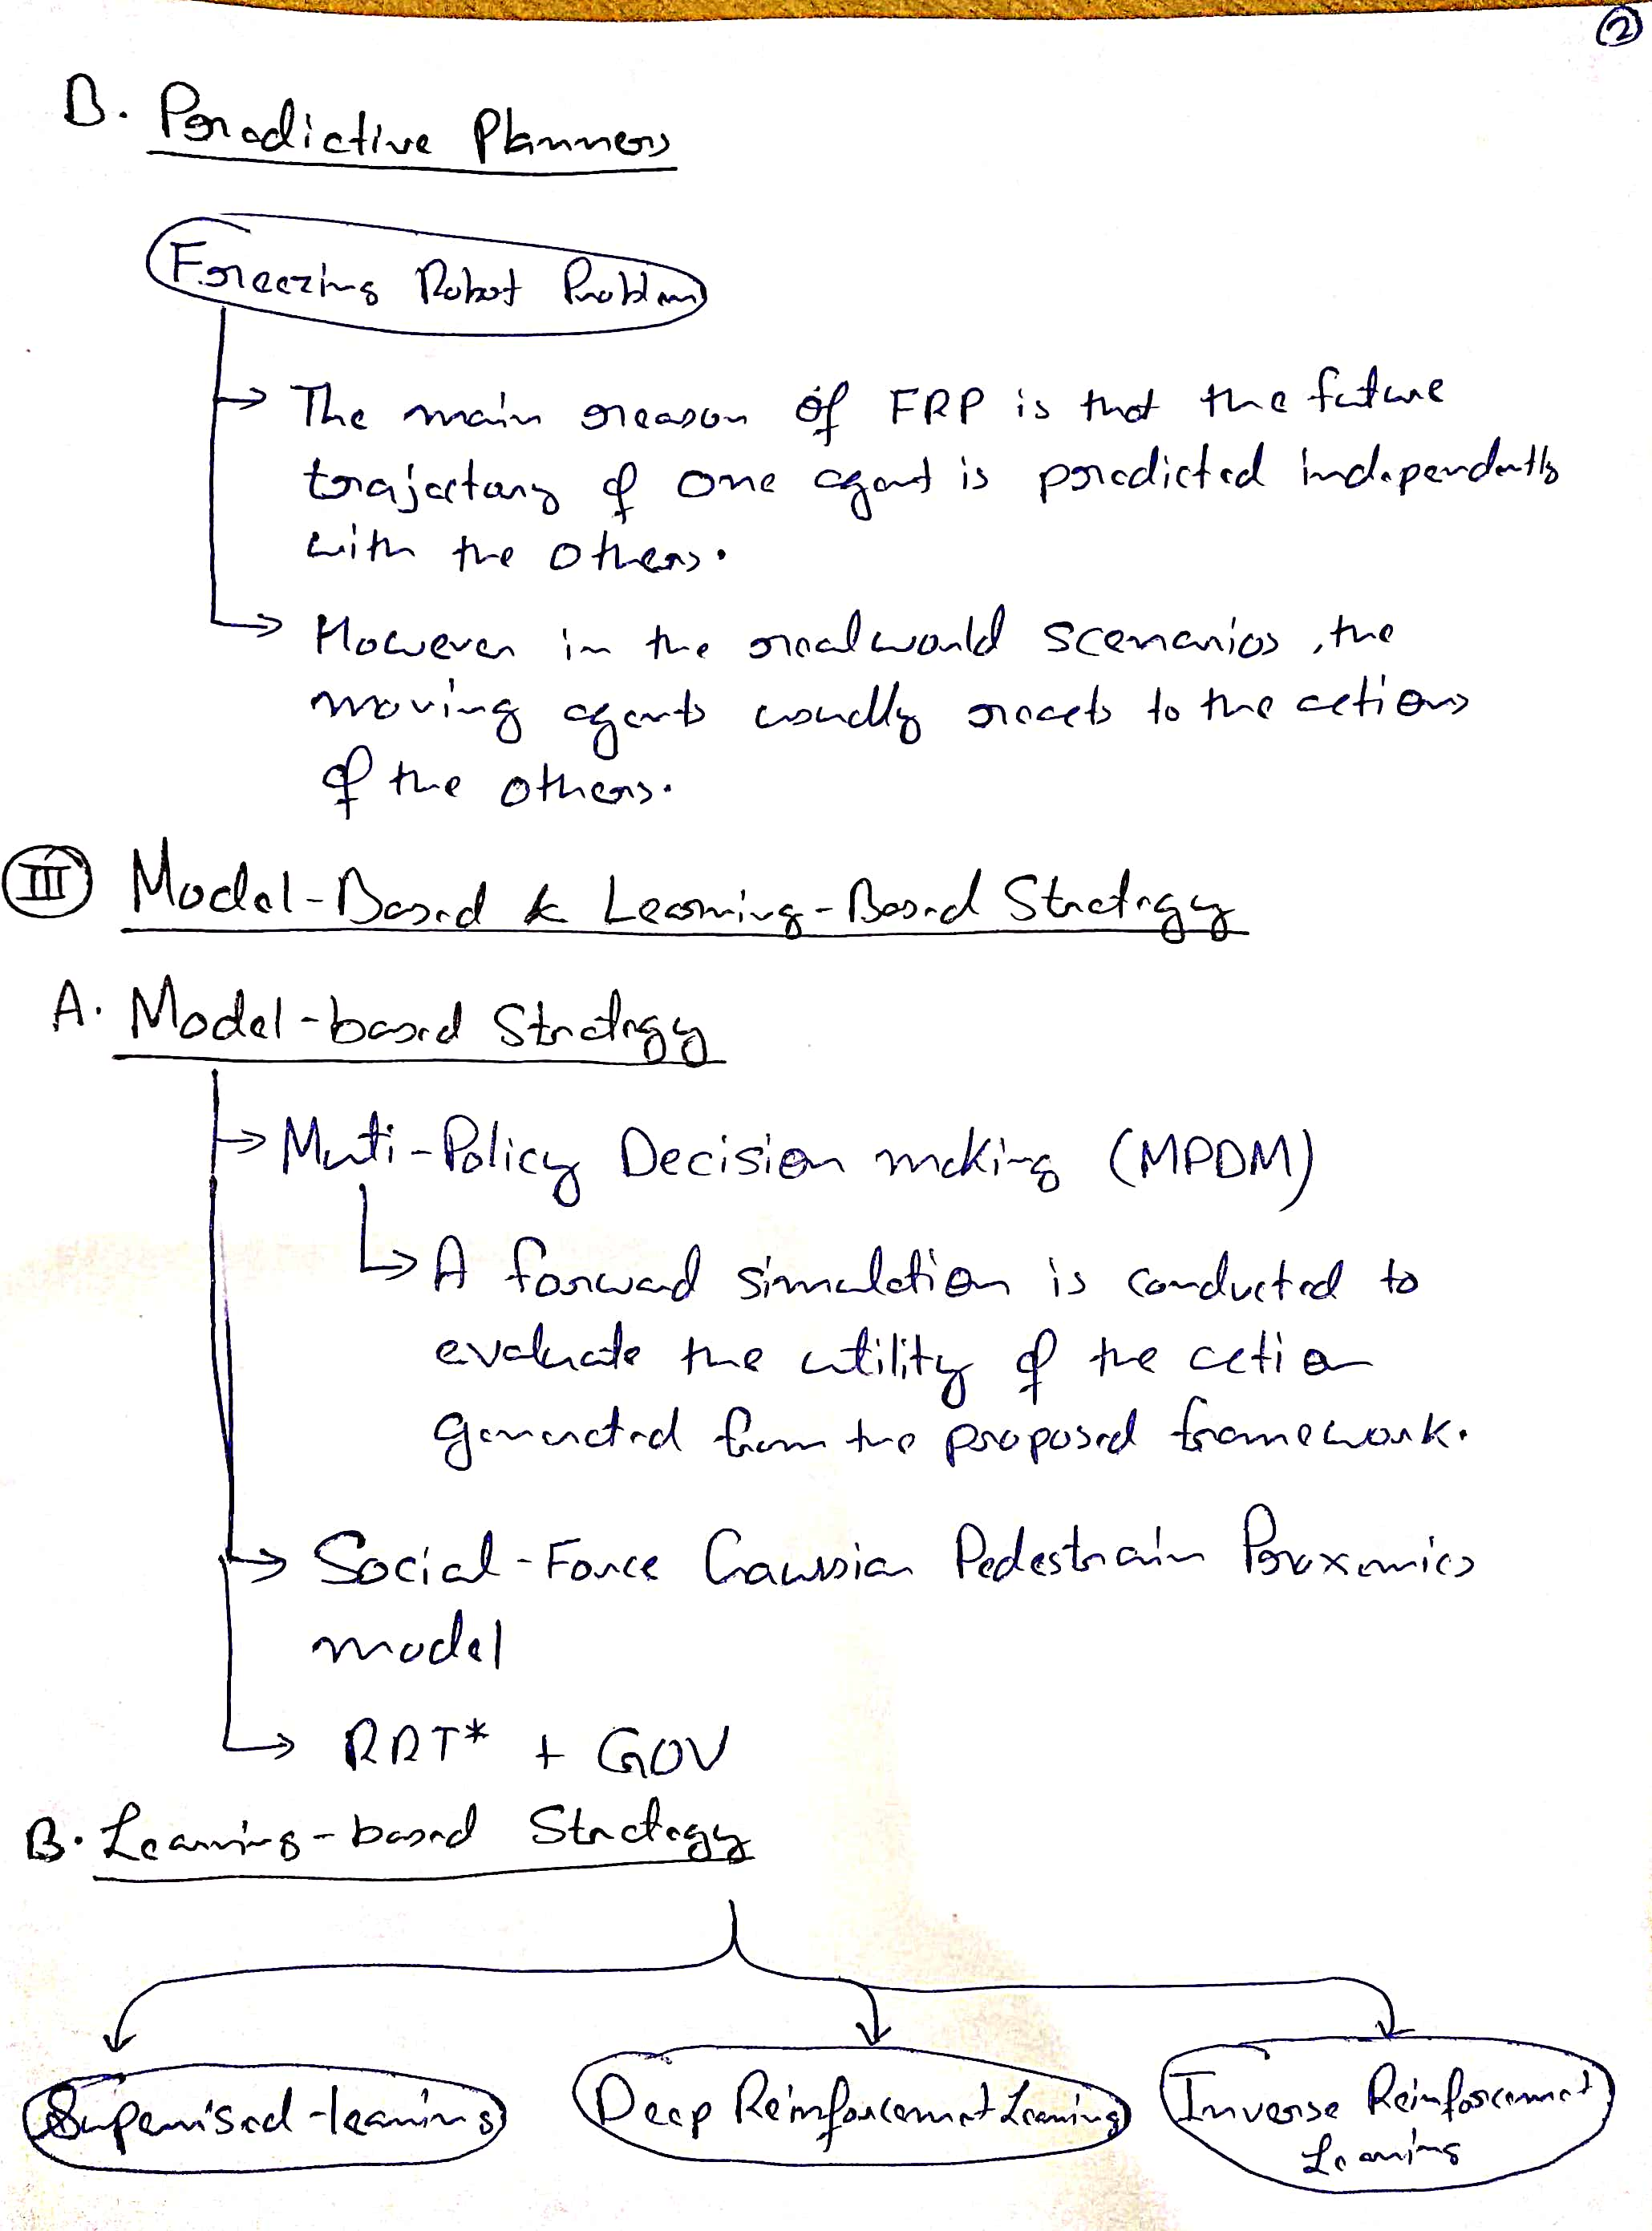 2
B. Predictive Planners
Freezing Robot Problem
→ The main reason of FRP is that the future
trajectory of one agent is predicted independently
with the others.
→ However in the real world scenarios, the
moving agents usually reacts to the actions
of the others.
III Model-Based & Learning-Based Strategy
A. Model-based Strategy
→ Muti-Policy Decision making (MPDM)
→ A forward simulation is conducted to
evaluate the utility of the action
generated from the proposed framework.
→ Social-Force Gaussian Pedestrain Proxemics
model
→ RRT* + GOV
B. Learning-based Strategy
Supervised-learning
Deep Reinforcement Learning
Inverse Reinforcement
Learning